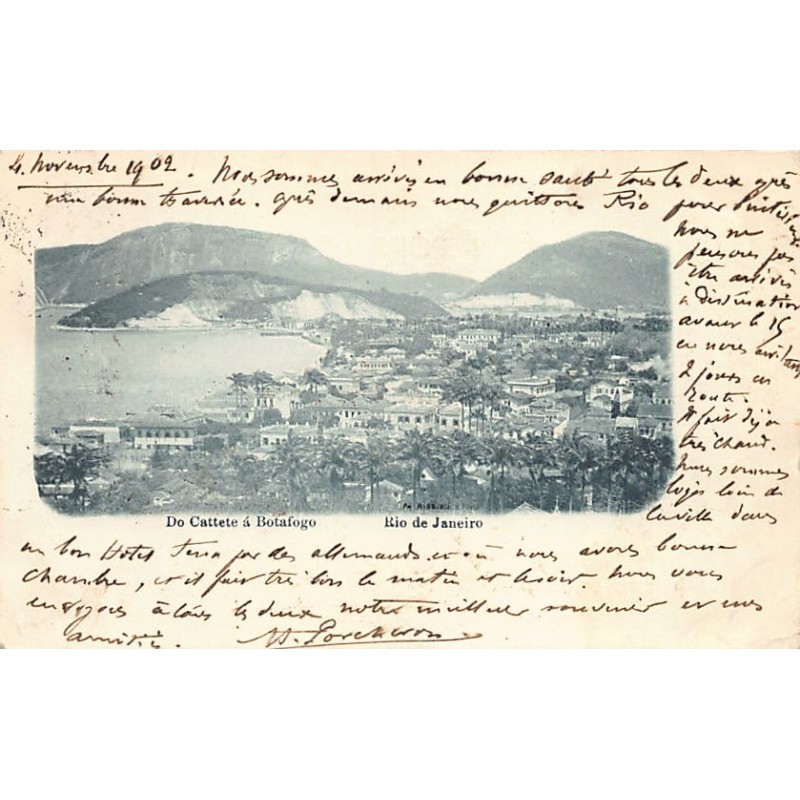 4 novembre 1902. Nous sommes arrivés en bonne santé tous les deux après
une bonne traversée. après demain nous quittons Rio pour
nous ne
pensons pas
être arrivés
à destination
avant le 15
en nous
2 jours en
route.
Il fait déja
très chaud.
Nous sommes
logés loin de
la ville dans
un bon Hotel tenu par des allemands, et où nous avons bonne
chambre, et il fait très bon le matin et le soir. Nous vous
envoyons à tous les deux notre meilleur souvenir et nos
amitiés. Porcheron
Do Cattete á Botafogo Rio de Janeiro